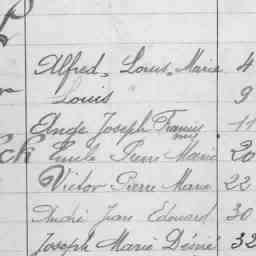 Alfred Louis Marie 4
Louis " 9
Ange Joseph Francis 11
ck Emile Pierre Marie 20
Victor Pierre Marie 22
André Jean Edouard 30
Joseph Marie Désiré 32